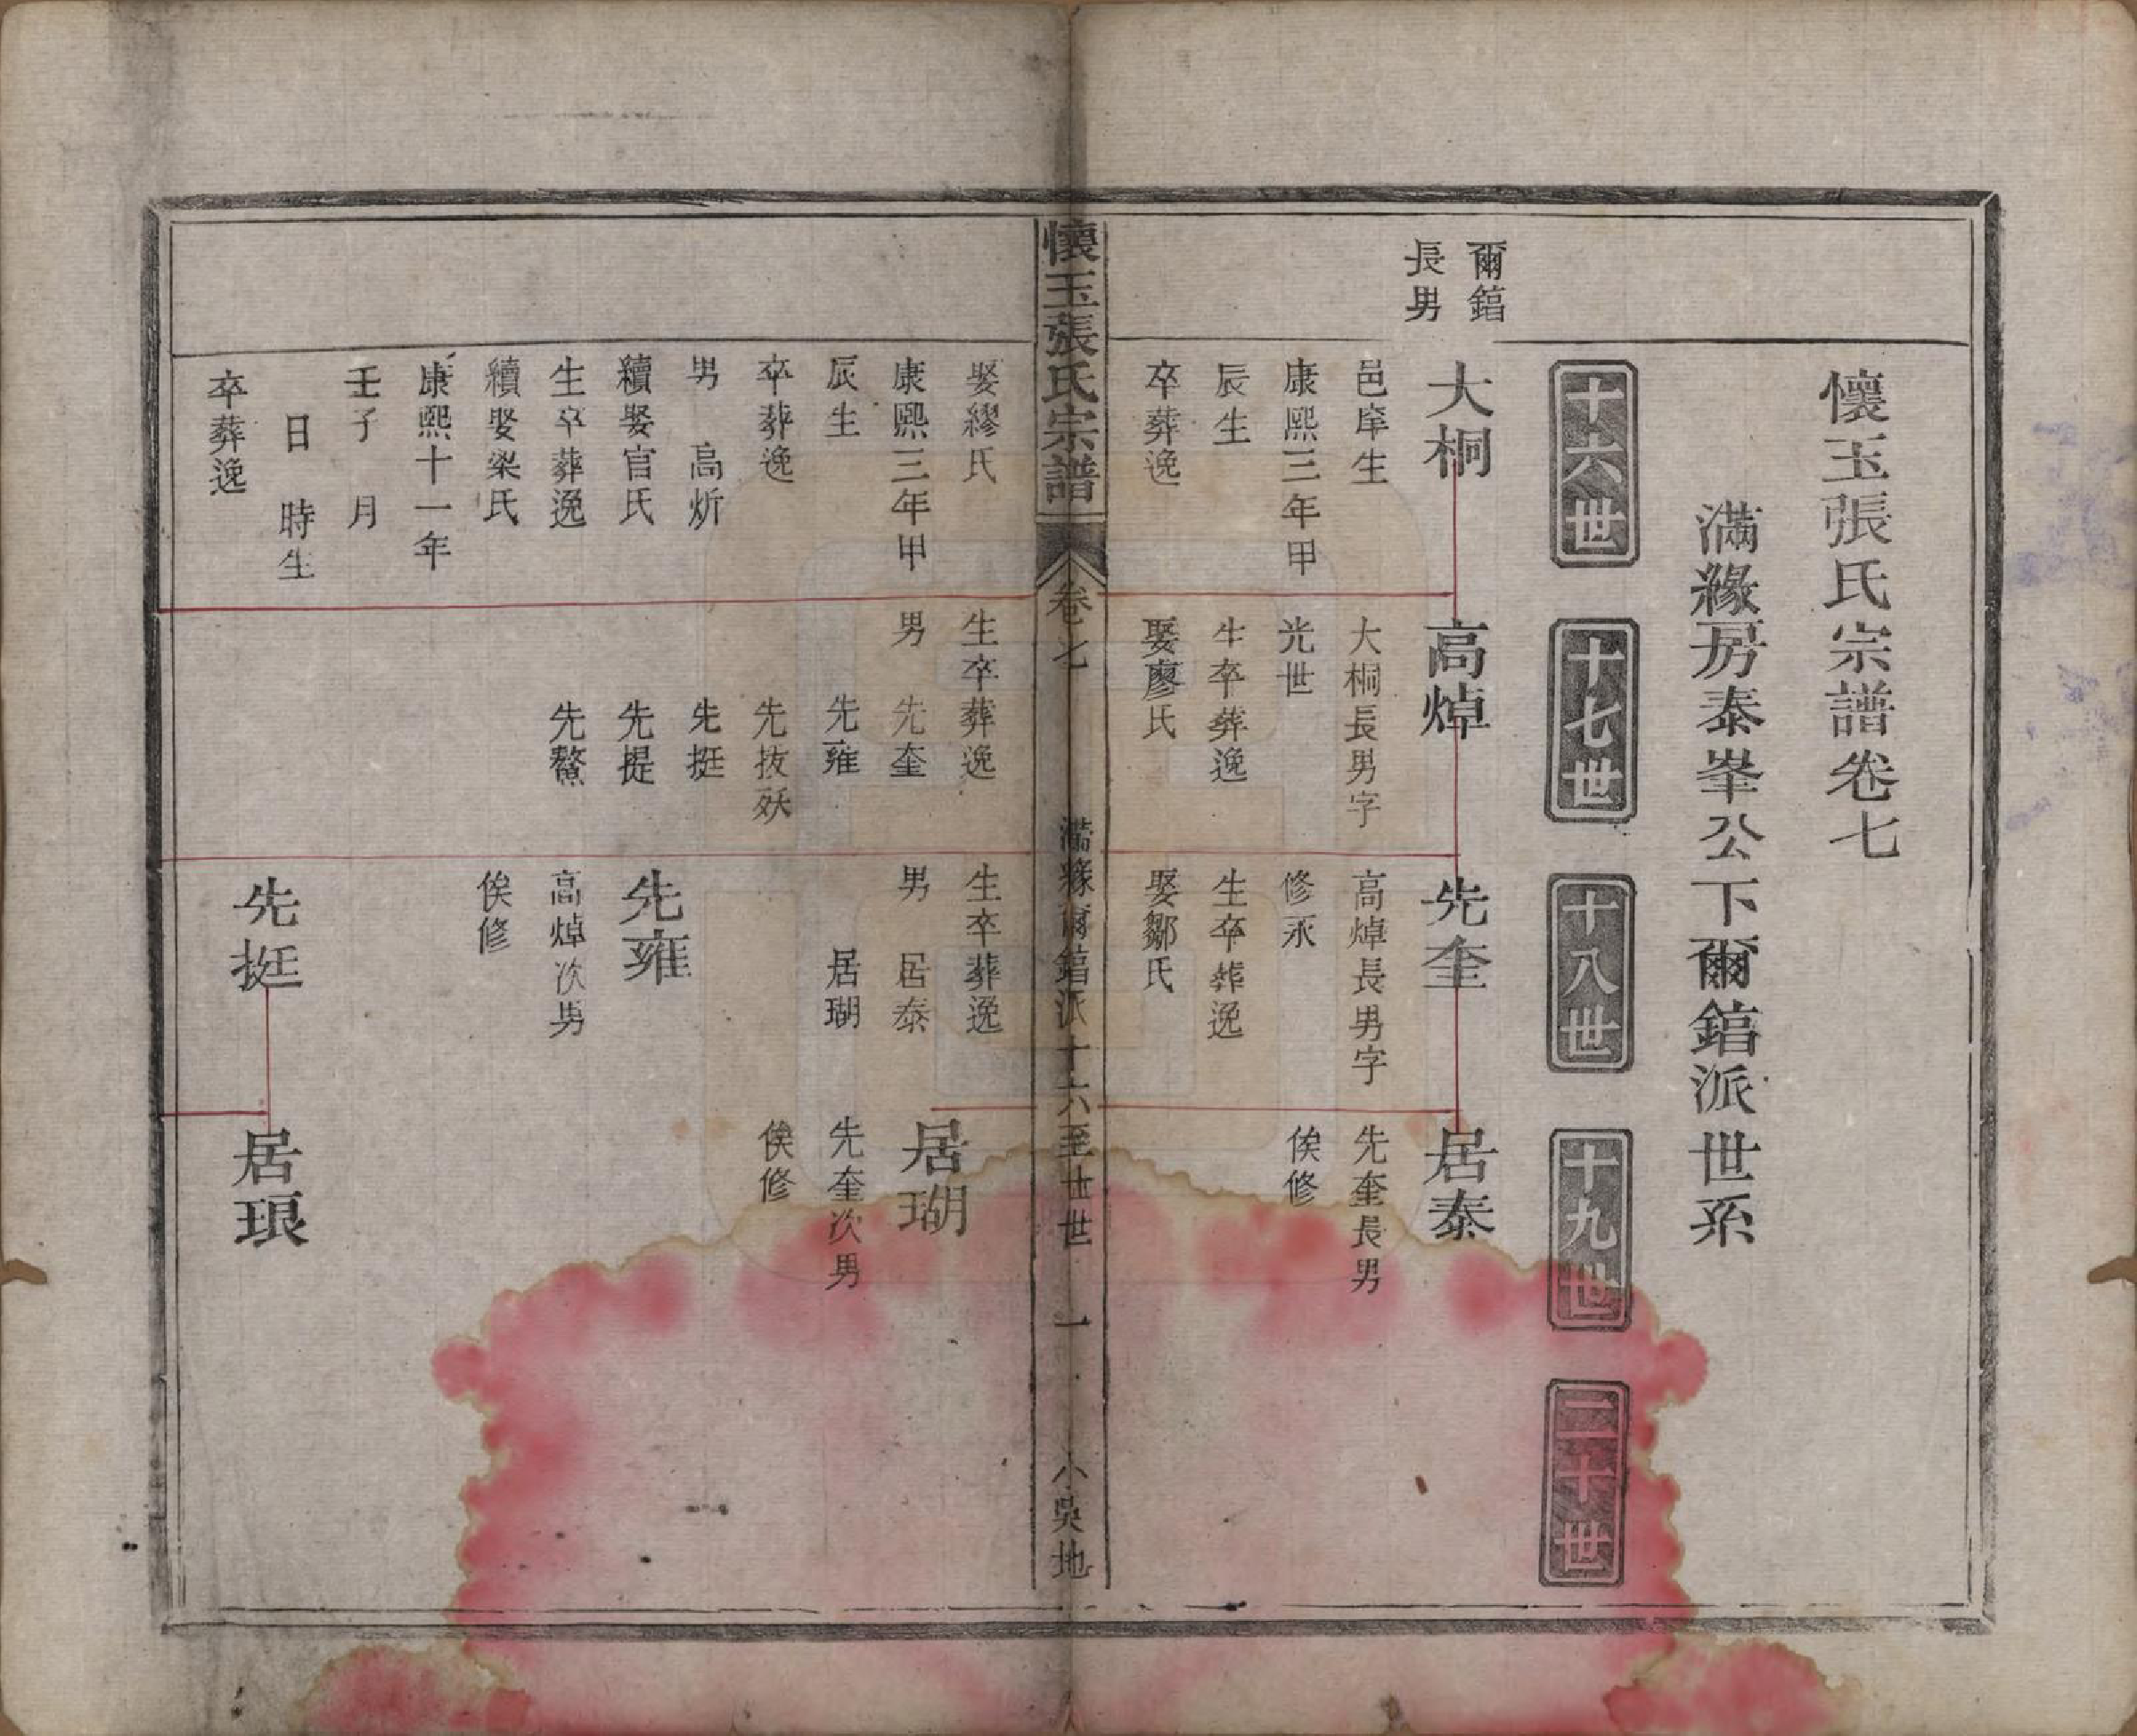 懷玉張氏宗譜卷七
滿緣房泰峯公下爾鎬派世系
十六世
十七世
十八世
十九世
二十世
爾鎬
長男
大桐
邑庠生
康熙三年甲
辰生
卒葬逸
高焯
大桐長男字
光世
生卒葬逸
娶廖氏
先奎
高焯長男字
修永
生卒葬逸
娶鄒氏
居泰
先奎長男
俟修
懷玉張氏宗譜
卷七
滿緣爾鎬派十六至廿世
一
小吳地
娶繆氏
康熙三年甲
辰生
卒葬逸
男 高炘
續娶官氏
生卒葬逸
續娶梁氏
康熙十一年
壬子 月
日 時生
卒葬逸
生卒葬逸
男 先奎
先雍
先抜殀
先挺
先提
先鰲
生卒葬逸
男 居泰
居瑚
先雍
高焯次男
俟修
先挺
居瑚
先奎次男
俟修
居琅